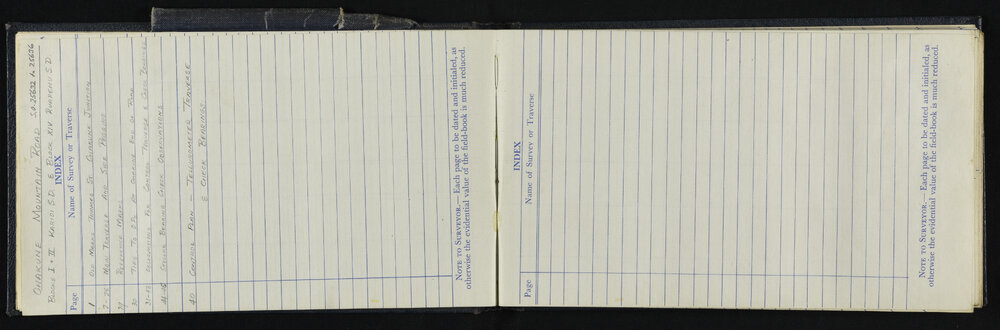 OHAKUNE MOUNTAIN ROAD S.O. 25632 to 25636
BLOCKS I + II KARIOI S.D. & BLOCK XIV RUAPEHU S.D.
INDEX
Page Name of Survey or Traverse
1 OLD MARKS OHAKUNE JUNCTION
MAIN TRAVERSE AND SIDE PEGGING
29 REFERENCE MARKS
30 TIES TO OPs AT OHAKUNE END OF ROAD
OBSERVATIONS FOR CONTROL TRAVERSE & CHECK BEARINGS
BEARING CHECK OBSERVATIONS
40 CONTROL PLAN — TELLUROMETER TRAVERSE
& CHECK BEARINGS
NOTE TO SURVEYOR.— Each page to be dated and initialed, as
otherwise the evidential value of the field-book is much reduced.
INDEX
Page Name of Survey or Traverse
NOTE TO SURVEYOR.— Each page to be dated and initialed, as
otherwise the evidential value of the field-book is much reduced.